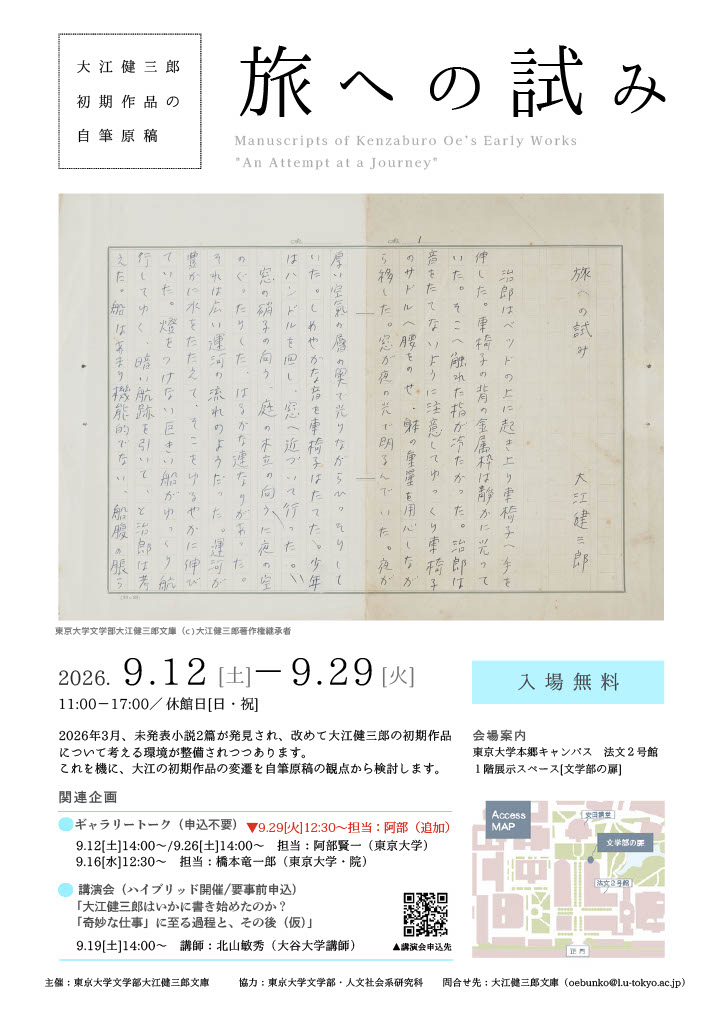 大江健三郎
初期作品の
自筆原稿
旅への試み
Manuscripts of Kenzaburo Oe's Early Works
"An Attempt at a Journey"
旅への試み
大江健三郎
治郎はベッドの上に起き上り車椅子へ手を
伸した。車椅子の背の金属枠は静かに光って
いた。そこへ触れた指が冷たかった。治郎は
音をたてないように注意してゆっくり車椅子
のサドルへ腰をのせ、躰の重量を用心しなが
ら移した。窓が夜の光で明るんでいた。夜が
厚い空氣の層の奥で光りながらひっそりして
いた。しめやかな音を車椅子はたてた。少年
はハンドルを回し、窓へ近づいて行った。
窓の硝子の向う、庭の木立の向うに夜の空
のぐったりした、はるかな連なりがあった。
それは広い運河の流れのようだった。運河が
豊かに水をたたえて、そこをゆるやかに伸び
ていた。燈をつけない巨きい船がゆっくり航
行してゆく、暗い航跡を引いて、と治郎は考
えた。船はあまり機能的でない、船腹の脹ら
東京大学文学部大江健三郎文庫（c)大江健三郎著作権継承者
2026. 9.12 [土]－9.29 [火]
11:00－17:00／休館日[日・祝]
入場無料
2026年3月、未発表小説2篇が発見され、改めて大江健三郎の初期作品
について考える環境が整備されつつあります。
これを機に、大江の初期作品の変遷を自筆原稿の観点から検討します。
会場案内
東京大学本郷キャンパス　法文２号館
１階展示スペース[文学部の扉]
関連企画
ギャラリートーク（申込不要）▼9.29[火]12:30～担当：阿部（追加）
9.12[土]14:00～/9.26[土]14:00～　担当：阿部賢一（東京大学）
9.16[水]12:30～　担当：橋本竜一郎（東京大学・院）
講演会（ハイブリッド開催/要事前申込）
「大江健三郎はいかに書き始めたのか？
「奇妙な仕事」に至る過程と、その後（仮）」
9.19[土]14:00～　講師：北山敏秀（大谷大学講師）
▲講演会申込先
Access
MAP
安田講堂
文学部の扉
法文２号館
正門
主催：東京大学文学部大江健三郎文庫　　協力：東京大学文学部・人文社会系研究科　　問合せ先：大江健三郎文庫（oebunko@l.u-tokyo.ac.jp）